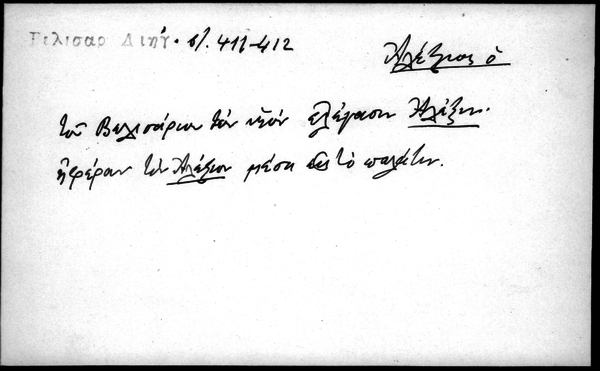 Βελισαρ Διηγ. στ. 411-412
Ἀλέξιος ὁ
τοῦ Βελισάριου τὸν υἱὸν ἐλέγασιν Ἀλέξιν.
ἠφέραν τὸν Ἀλέξιον μέσα εἰς τὸ παλάτιν.